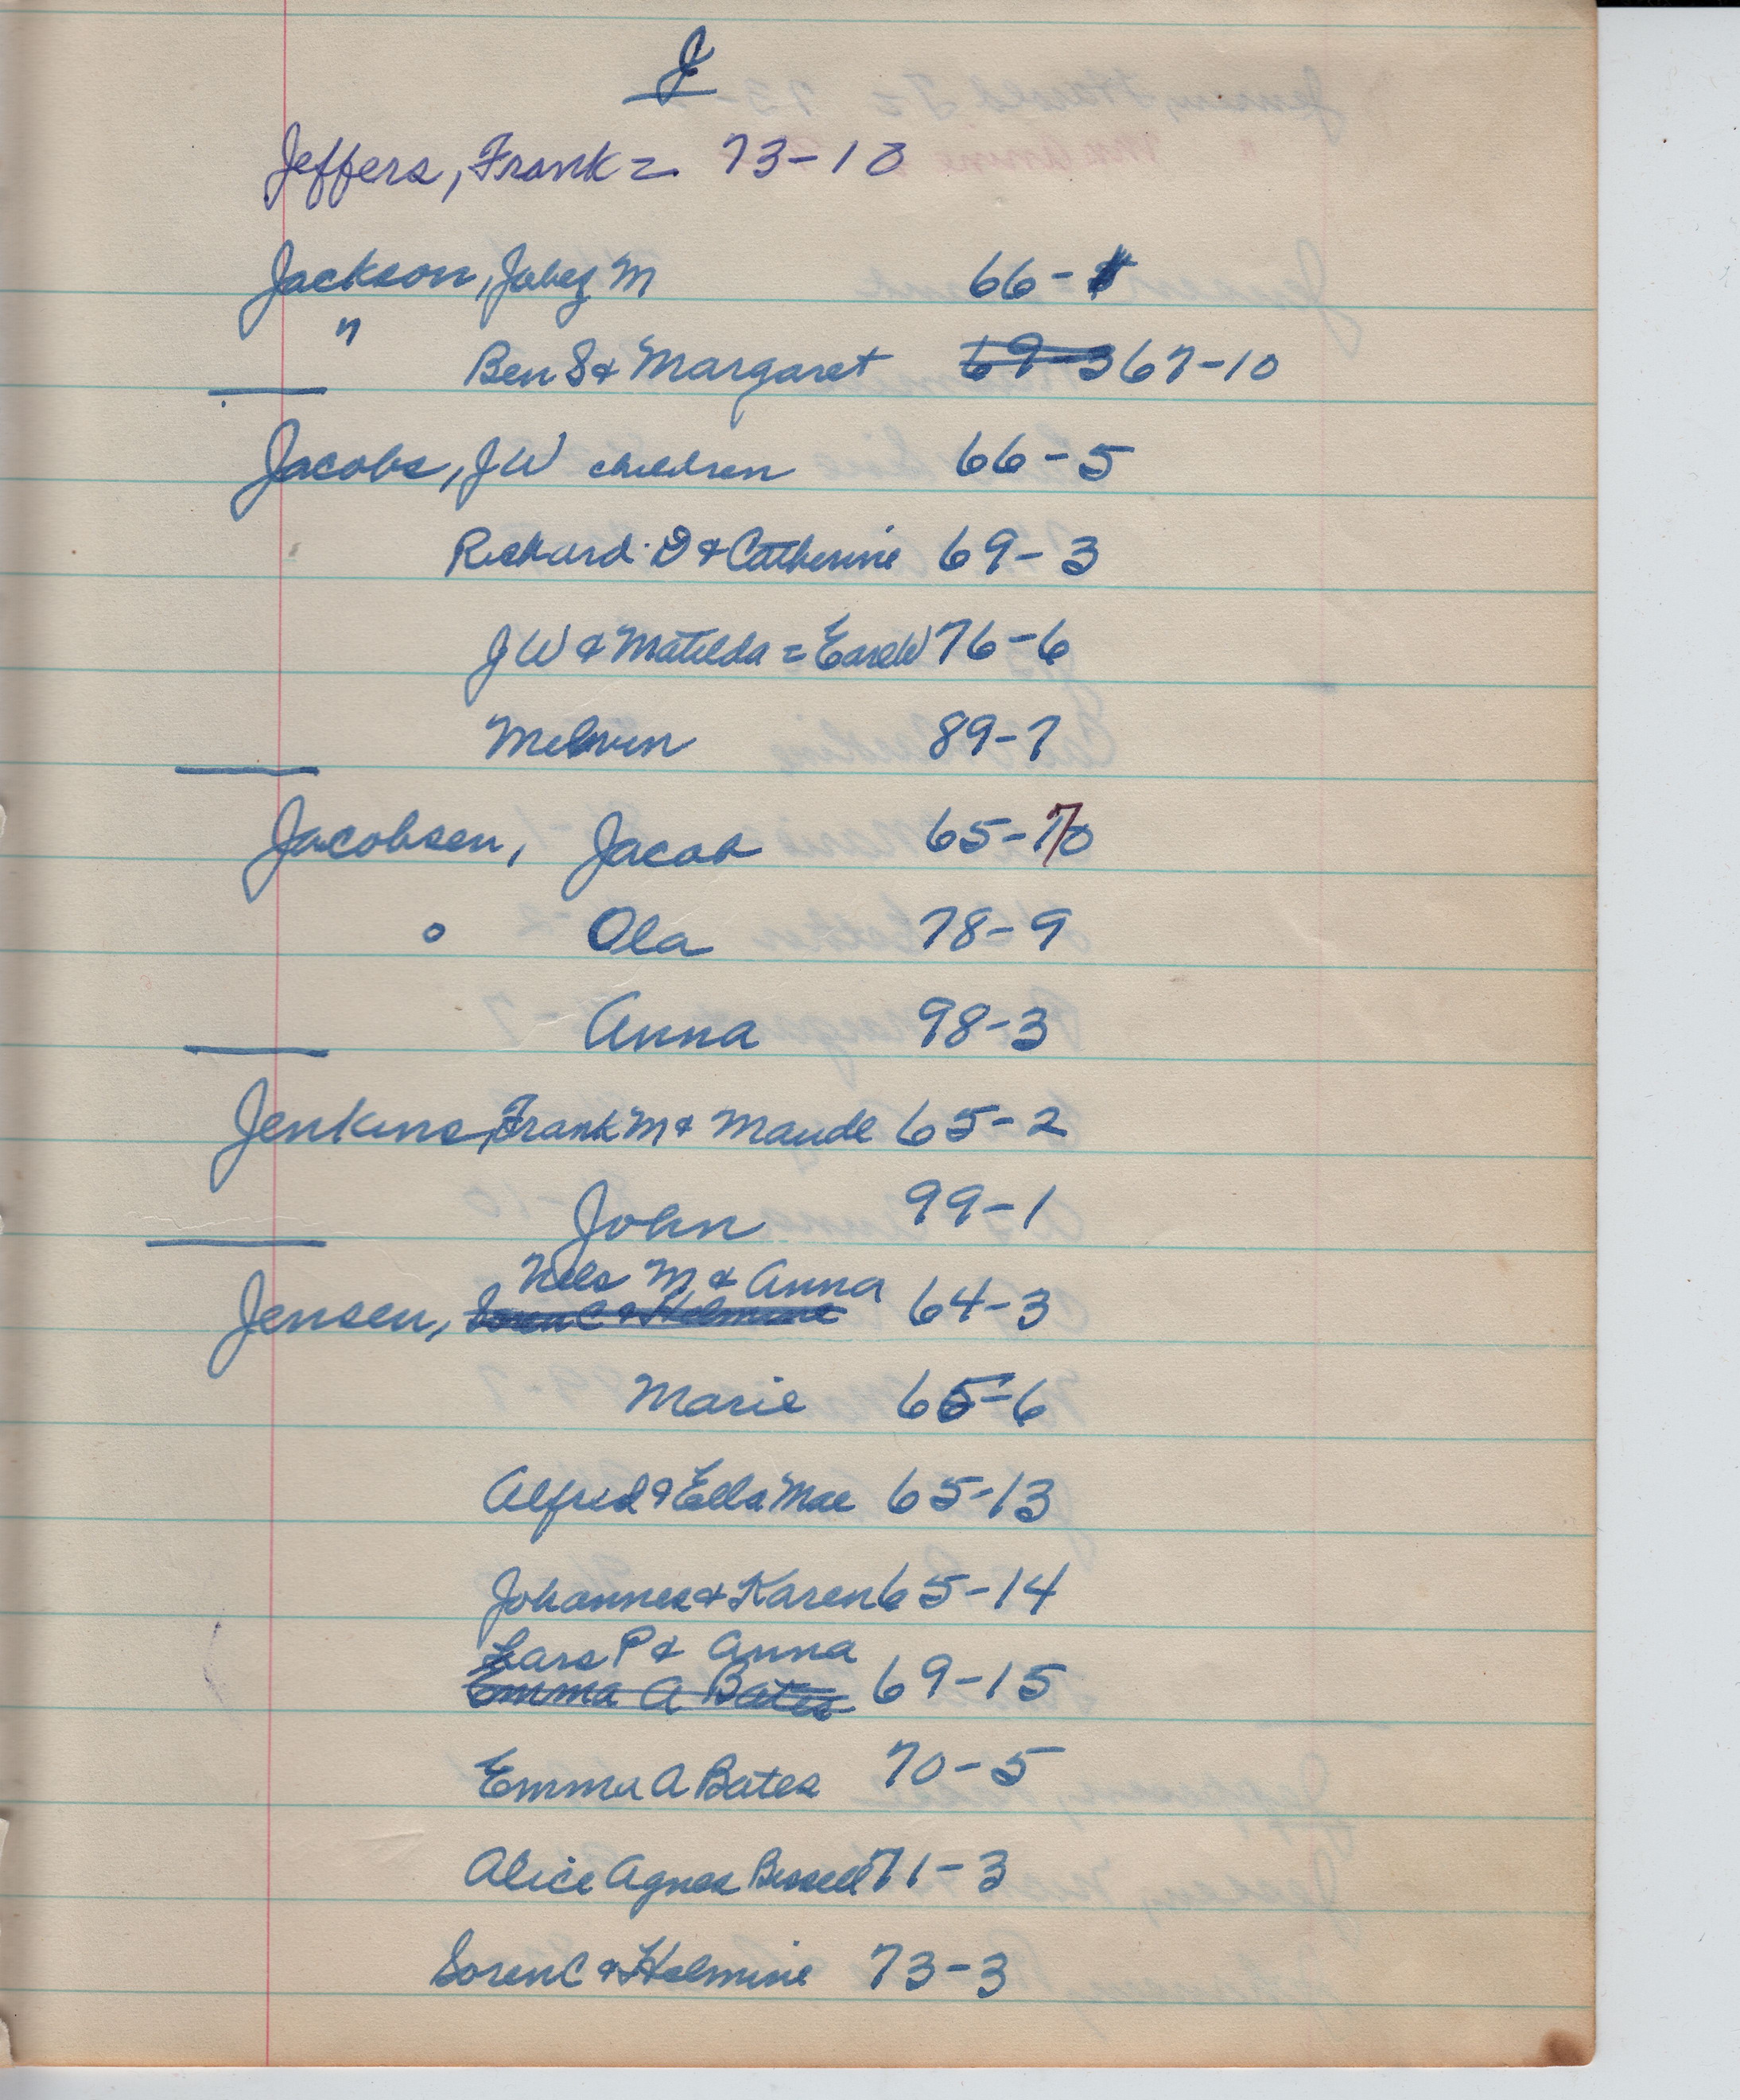 J
Jeffers, Frank = 73-10
Jackson, Jabez M 66-
" Ben S & Margaret 69-3 67-10
Jacobs, JW children 66-5
Richard D & Catherine 69-3
JW & Matilda = Earl W 76-6
Melvin 89-7
Jacobsen, Jacob 65-7
Ola 78-9
Anna 98-3
Jenkins, Frank M & Maude 65-2
John 99-1
Nels M & Anna
Jensen, Soren C & Helmine 64-3
Marie 65-6
Alfred & Ella Mae 65-13
Johannes & Karen 65-14
Lars P & Anna
Emma A Bates 69-15
Emma A Bates 70-5
Alice Agnes Bissell 71-3
Soren C & Helmine 73-3